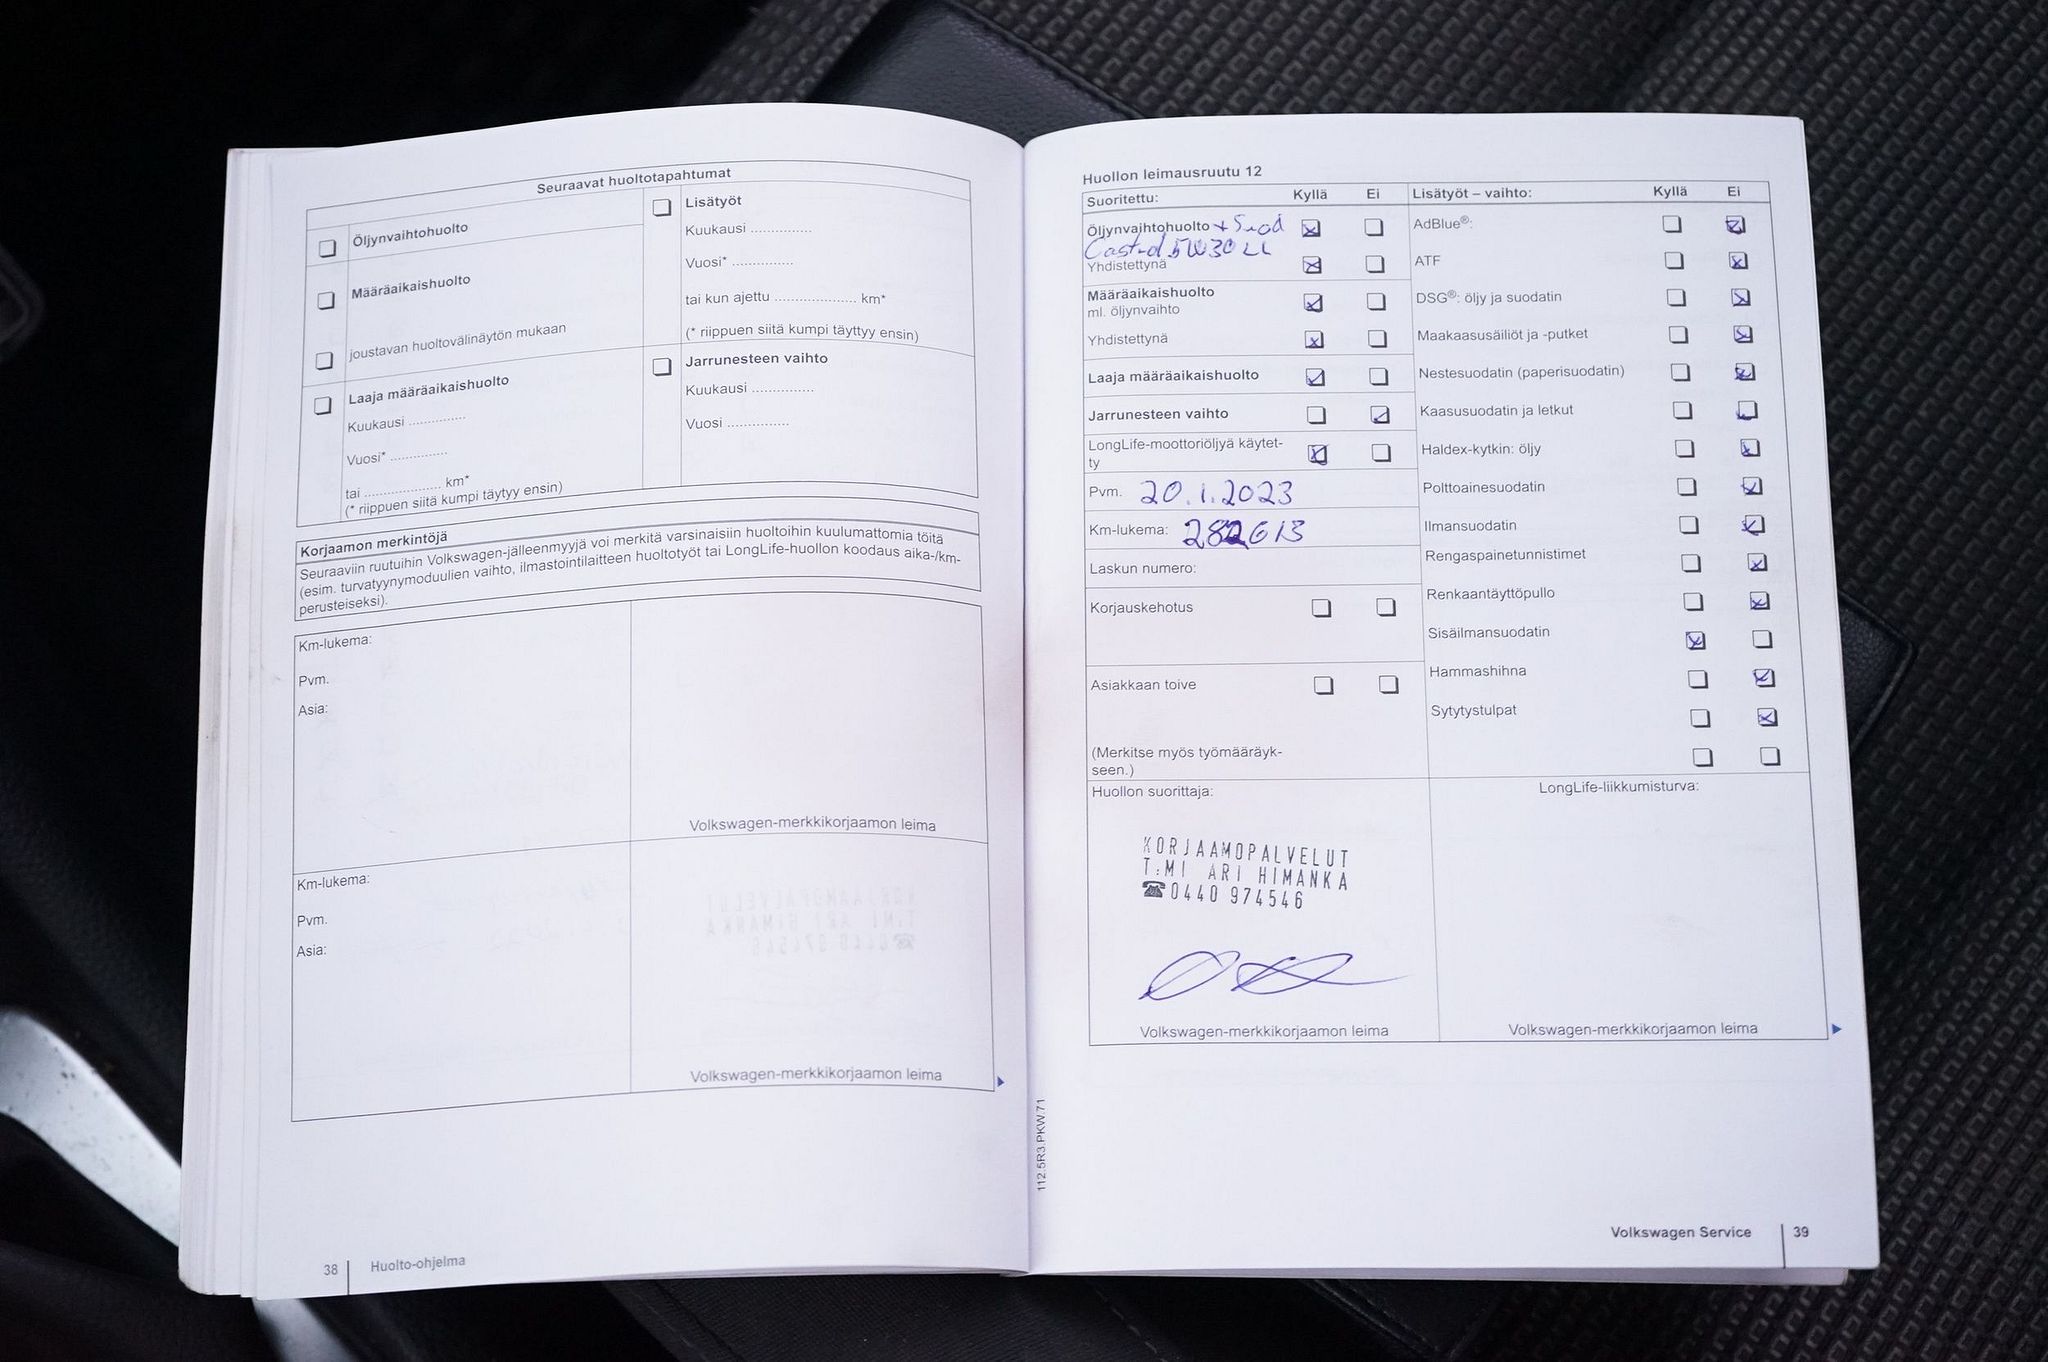 Seuraavat huoltotapahtumat
Öljynvaihtohuolto
Määräaikaishuolto
joustavan huoltovälinäytön mukaan
Laaja määräaikaishuolto
Kuukausi ..............
Vuosi* ..............
tai ................... km*
(* riippuen siitä kumpi täytyy ensin)
Lisätyöt
Kuukausi ...............
Vuosi* ...............
tai kun ajettu .................... km*
(* riippuen siitä kumpi täyttyy ensin)
Jarrunesteen vaihto
Kuukausi ...............
Vuosi ...............
Korjaamon merkintöjä
Seuraaviin ruutuihin Volkswagen-jälleenmyyjä voi merkitä varsinaisiin huoltoihin kuulumattomia töitä
(esim. turvatyynymoduulien vaihto, ilmastointilaitteen huoltotyöt tai LongLife-huollon koodaus aika-/km-
perusteiseksi).
Km-lukema:
Pvm.
Asia:
Volkswagen-merkkikorjaamon leima
Km-lukema:
Pvm.
Asia:
Volkswagen-merkkikorjaamon leima
38 Huolto-ohjelma
112.5R3.PKW.71
Huollon leimausruutu 12
Suoritettu: Kyllä Ei
Öljynvaihtohuolto + Suod
Castrol 5W30 LL
Yhdistettynä
Määräaikaishuolto
ml. öljynvaihto
Yhdistettynä
Laaja määräaikaishuolto
Jarrunesteen vaihto
LongLife-moottoriöljyä käytet-
ty
Pvm. 20.1.2023
Km-lukema: 282613
Laskun numero:
Korjauskehotus
Asiakkaan toive
(Merkitse myös työmääräyk-
seen.)
Lisätyöt – vaihto: Kyllä Ei
AdBlue®:
ATF
DSG®: öljy ja suodatin
Maakaasusäiliöt ja -putket
Nestesuodatin (paperisuodatin)
Kaasusuodatin ja letkut
Haldex-kytkin: öljy
Polttoainesuodatin
Ilmansuodatin
Rengaspainetunnistimet
Renkaantäyttöpullo
Sisäilmansuodatin
Hammashihna
Sytytystulpat
Huollon suorittaja:
KORJAAMOPALVELUT
T:MI ARI HIMANKA
☎0440 974546
Volkswagen-merkkikorjaamon leima
LongLife-liikkumisturva:
Volkswagen-merkkikorjaamon leima
Volkswagen Service 39